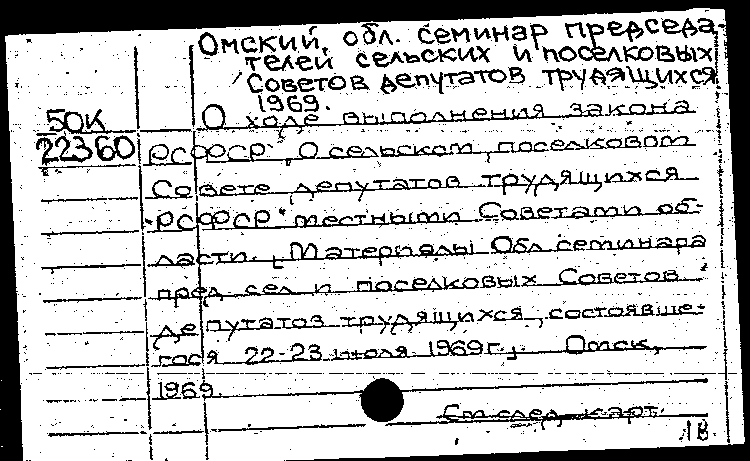 Омский, обл. семинар председа-
телей сельских и поселковых
Советов депутатов трудящихся
1969.
50К
О ходе выполнения закона
22360
РСФСР „О сельском, поселковом
Совете депутатов трудящихся
РСФСР" местными Советами об-
ласти. [Материалы Обл семинара
пред. сел и поселковых Советов
депутатов трудящихся, состоявше-
гося 22-23 июля 1969г.]. Омск,
1969.
См след. карт.
1В